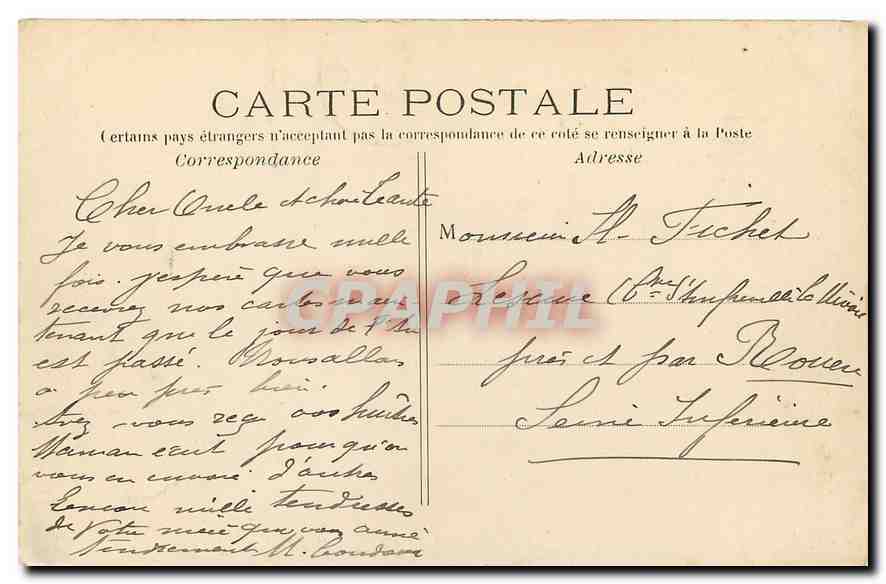 CARTE POSTALE
Certains pays étrangers n'acceptant pas la correspondance de ce coté se renseigner à la Poste
Correspondance
Adresse
Cher Oncle et chère Tante
Je vous embrasse mille
fois. j'espère que vous
recevrez nos cartes main
tenant que le jour de l'
est passé. Nous allons
a peu près bien.
Avez vous reçu vos huîtres
Maman écrit pour qu'on
vous en envoie d'autres
Encore mille tendresses
de Votre nièce que vous aimé
tendrement M.
Monsieur A. Fichet
près et par Rouen
Seine Inférieure
CPAPHIL